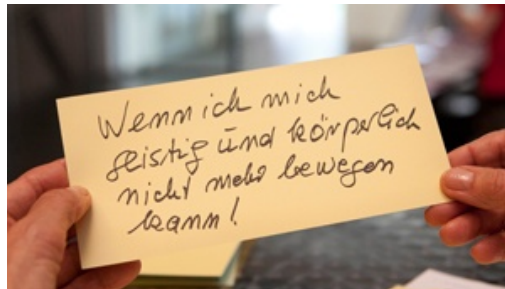 Wenn ich mich
geistig und körperlich
nicht mehr bewegen
kann!